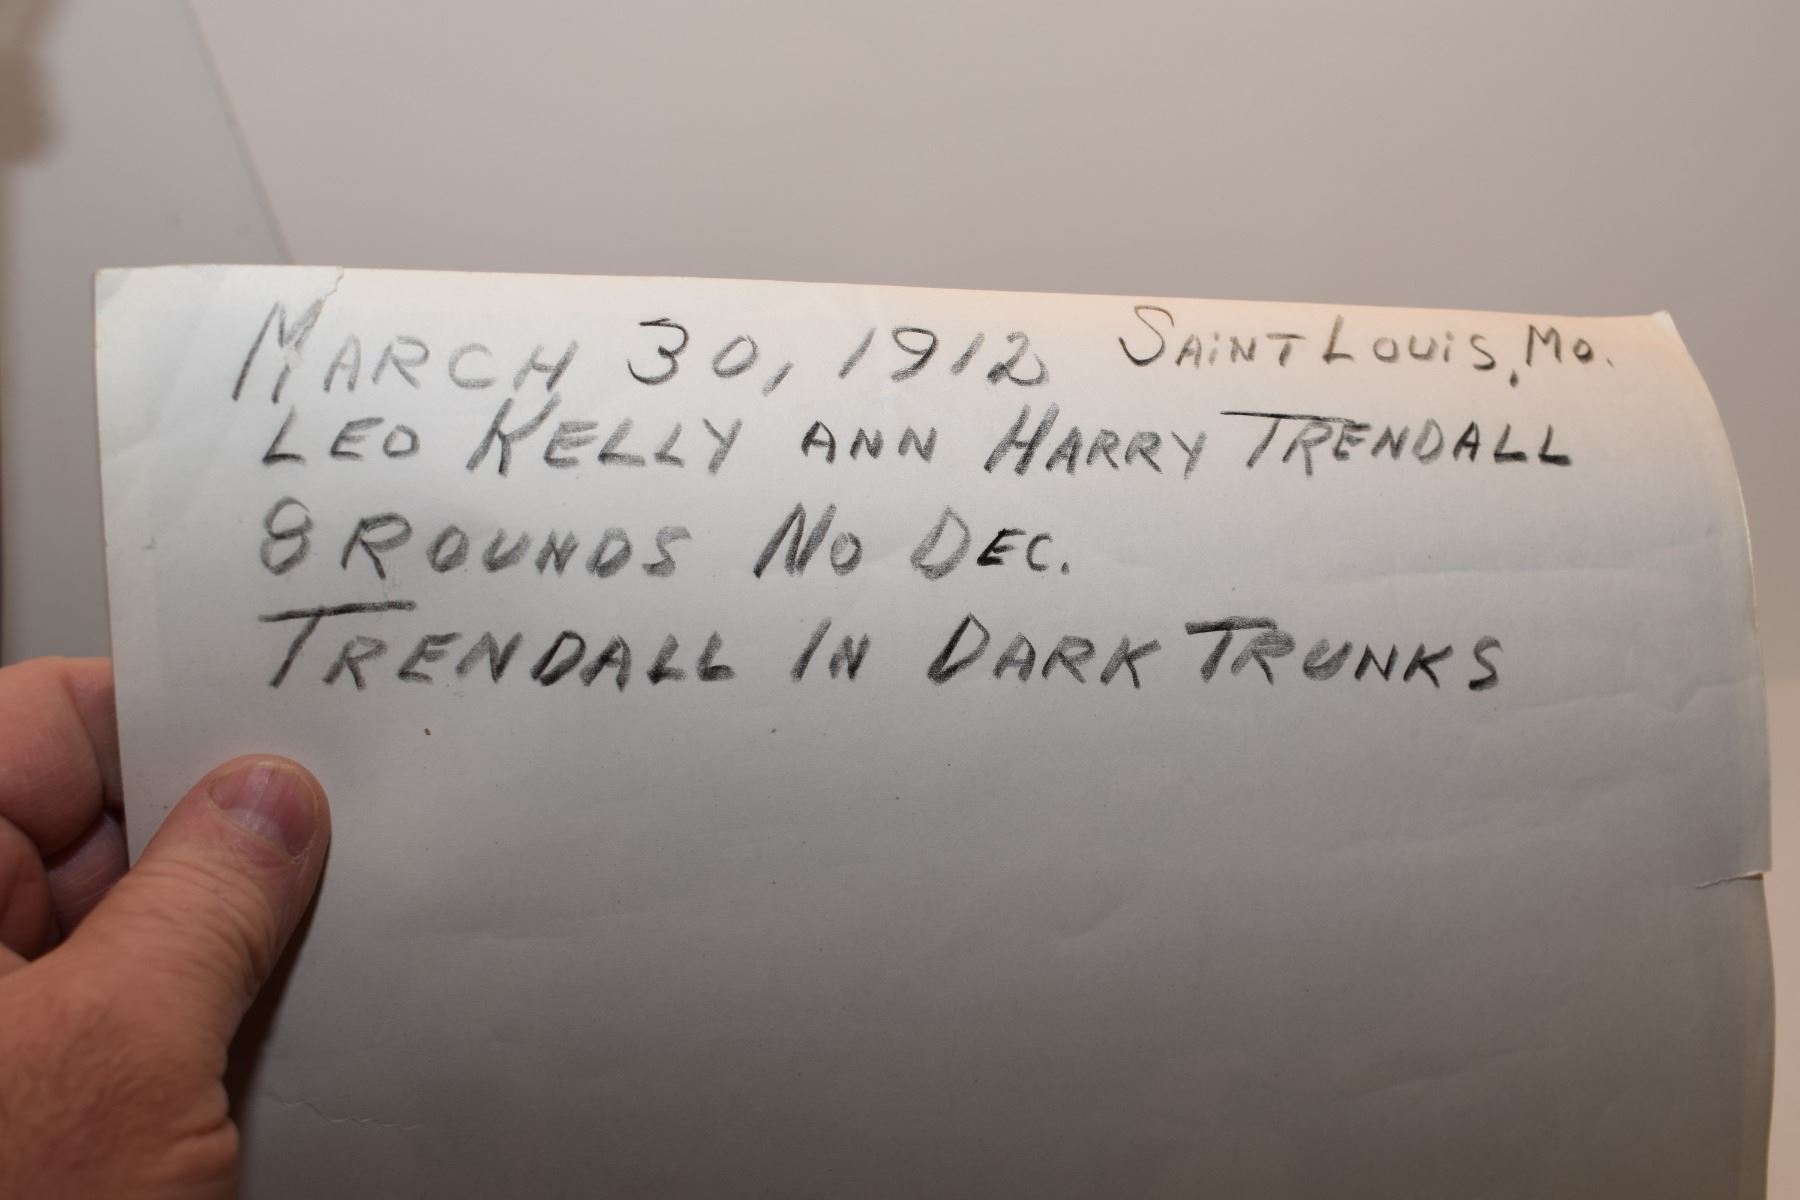 MARCH 30, 1912 SAINT LOUIS, MO.
LEO KELLY ANN HARRY TRENDALL
8 ROUNDS NO DEC.
TRENDALL IN DARK TRUNKS